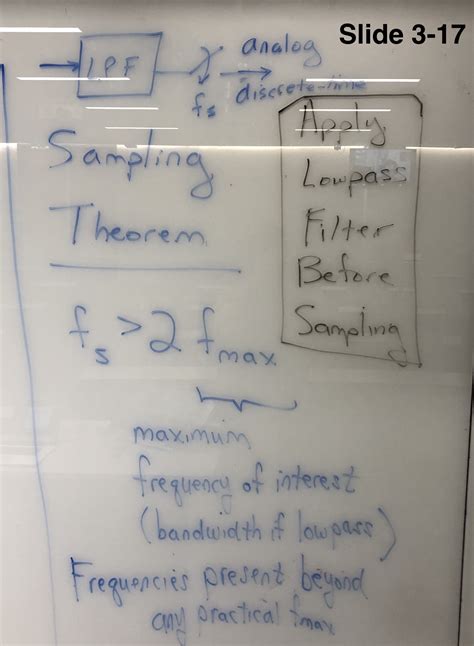 Slide 3-17
LPF
analog
fs
discrete-time
Apply
Lowpass
Filter
Before
Sampling
Sampling
Theorem
fs > 2 fmax
maximum
frequency of interest
(bandwidth if lowpass)
Frequencies present beyond
any practical fmax